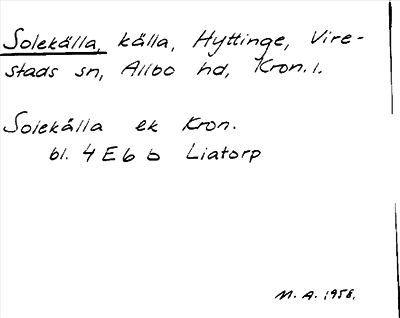 Solekälla, källa, Hyttinge, Vire-
stads sn, Allbo hd, Kron. l.
Solekälla ek Kron.
bl. 4 E 6 b Liatorp
M. A. 1958.